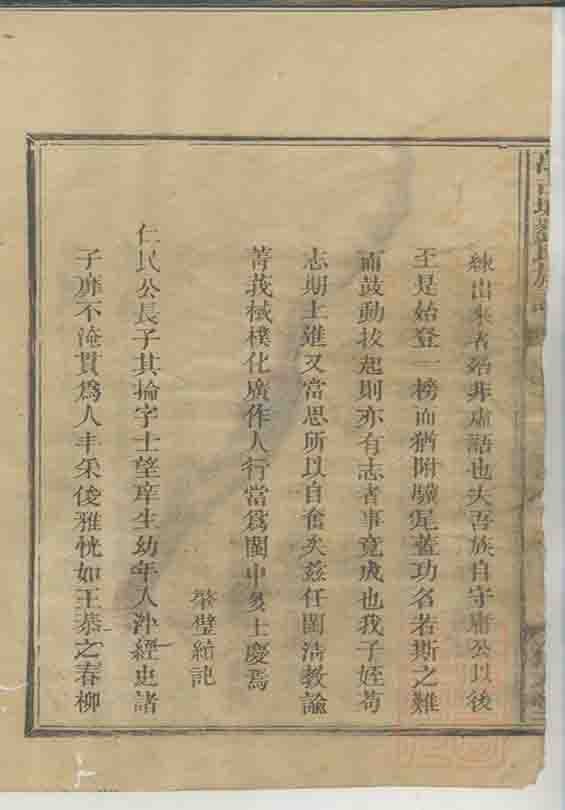 練出來者洵非虛語也夫吾族自守庸公以後
至是始登一榜而猶附驥尾蓋功名若斯之難
而鼓動拔起則亦有志者事竟成也我子姪苟
志期上進又當思所以自奮矣茲任閩清教諭
菁莪棫樸化廣作人行當為閩中多士慶焉
榮璧結記
仁民公長子其掄字士望庠生幼年入泮經史諸
子靡不淹貫爲人丰采俊雅恍如王恭之春柳